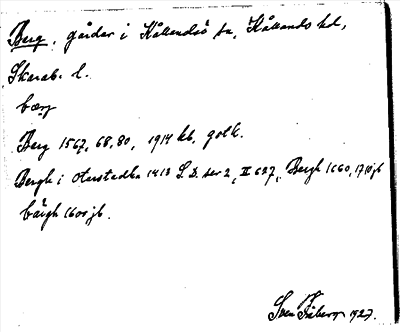 Berg, gårdar i Kållandsö sn, Kållands hd,
Skarab. l.
bærj
Berg 1567, 68, 80, 1914 kb, golk.
Bergh i 1413 S. D. ser 2, II 627, Bergh 1660, 1710 jb
bärgh 1600 jb.
Sven 1927.